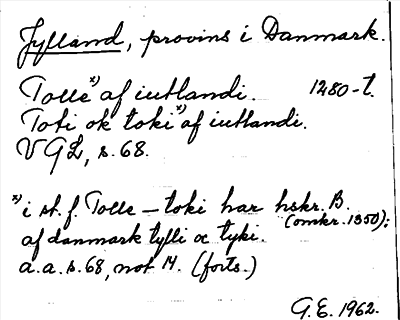 Jylland, provins i Danmark.
Tolle*) af iutlandi. 1280-t.
Toti ok toki*) af iutlandi.
VGL, s. 68.
*) i st. f. Tolle – toki har hskr. B.
(omkr. 1350):
af danmark tylli oc tyki.
a.a. s. 68, not 14. (forts.)
G.E. 1962.